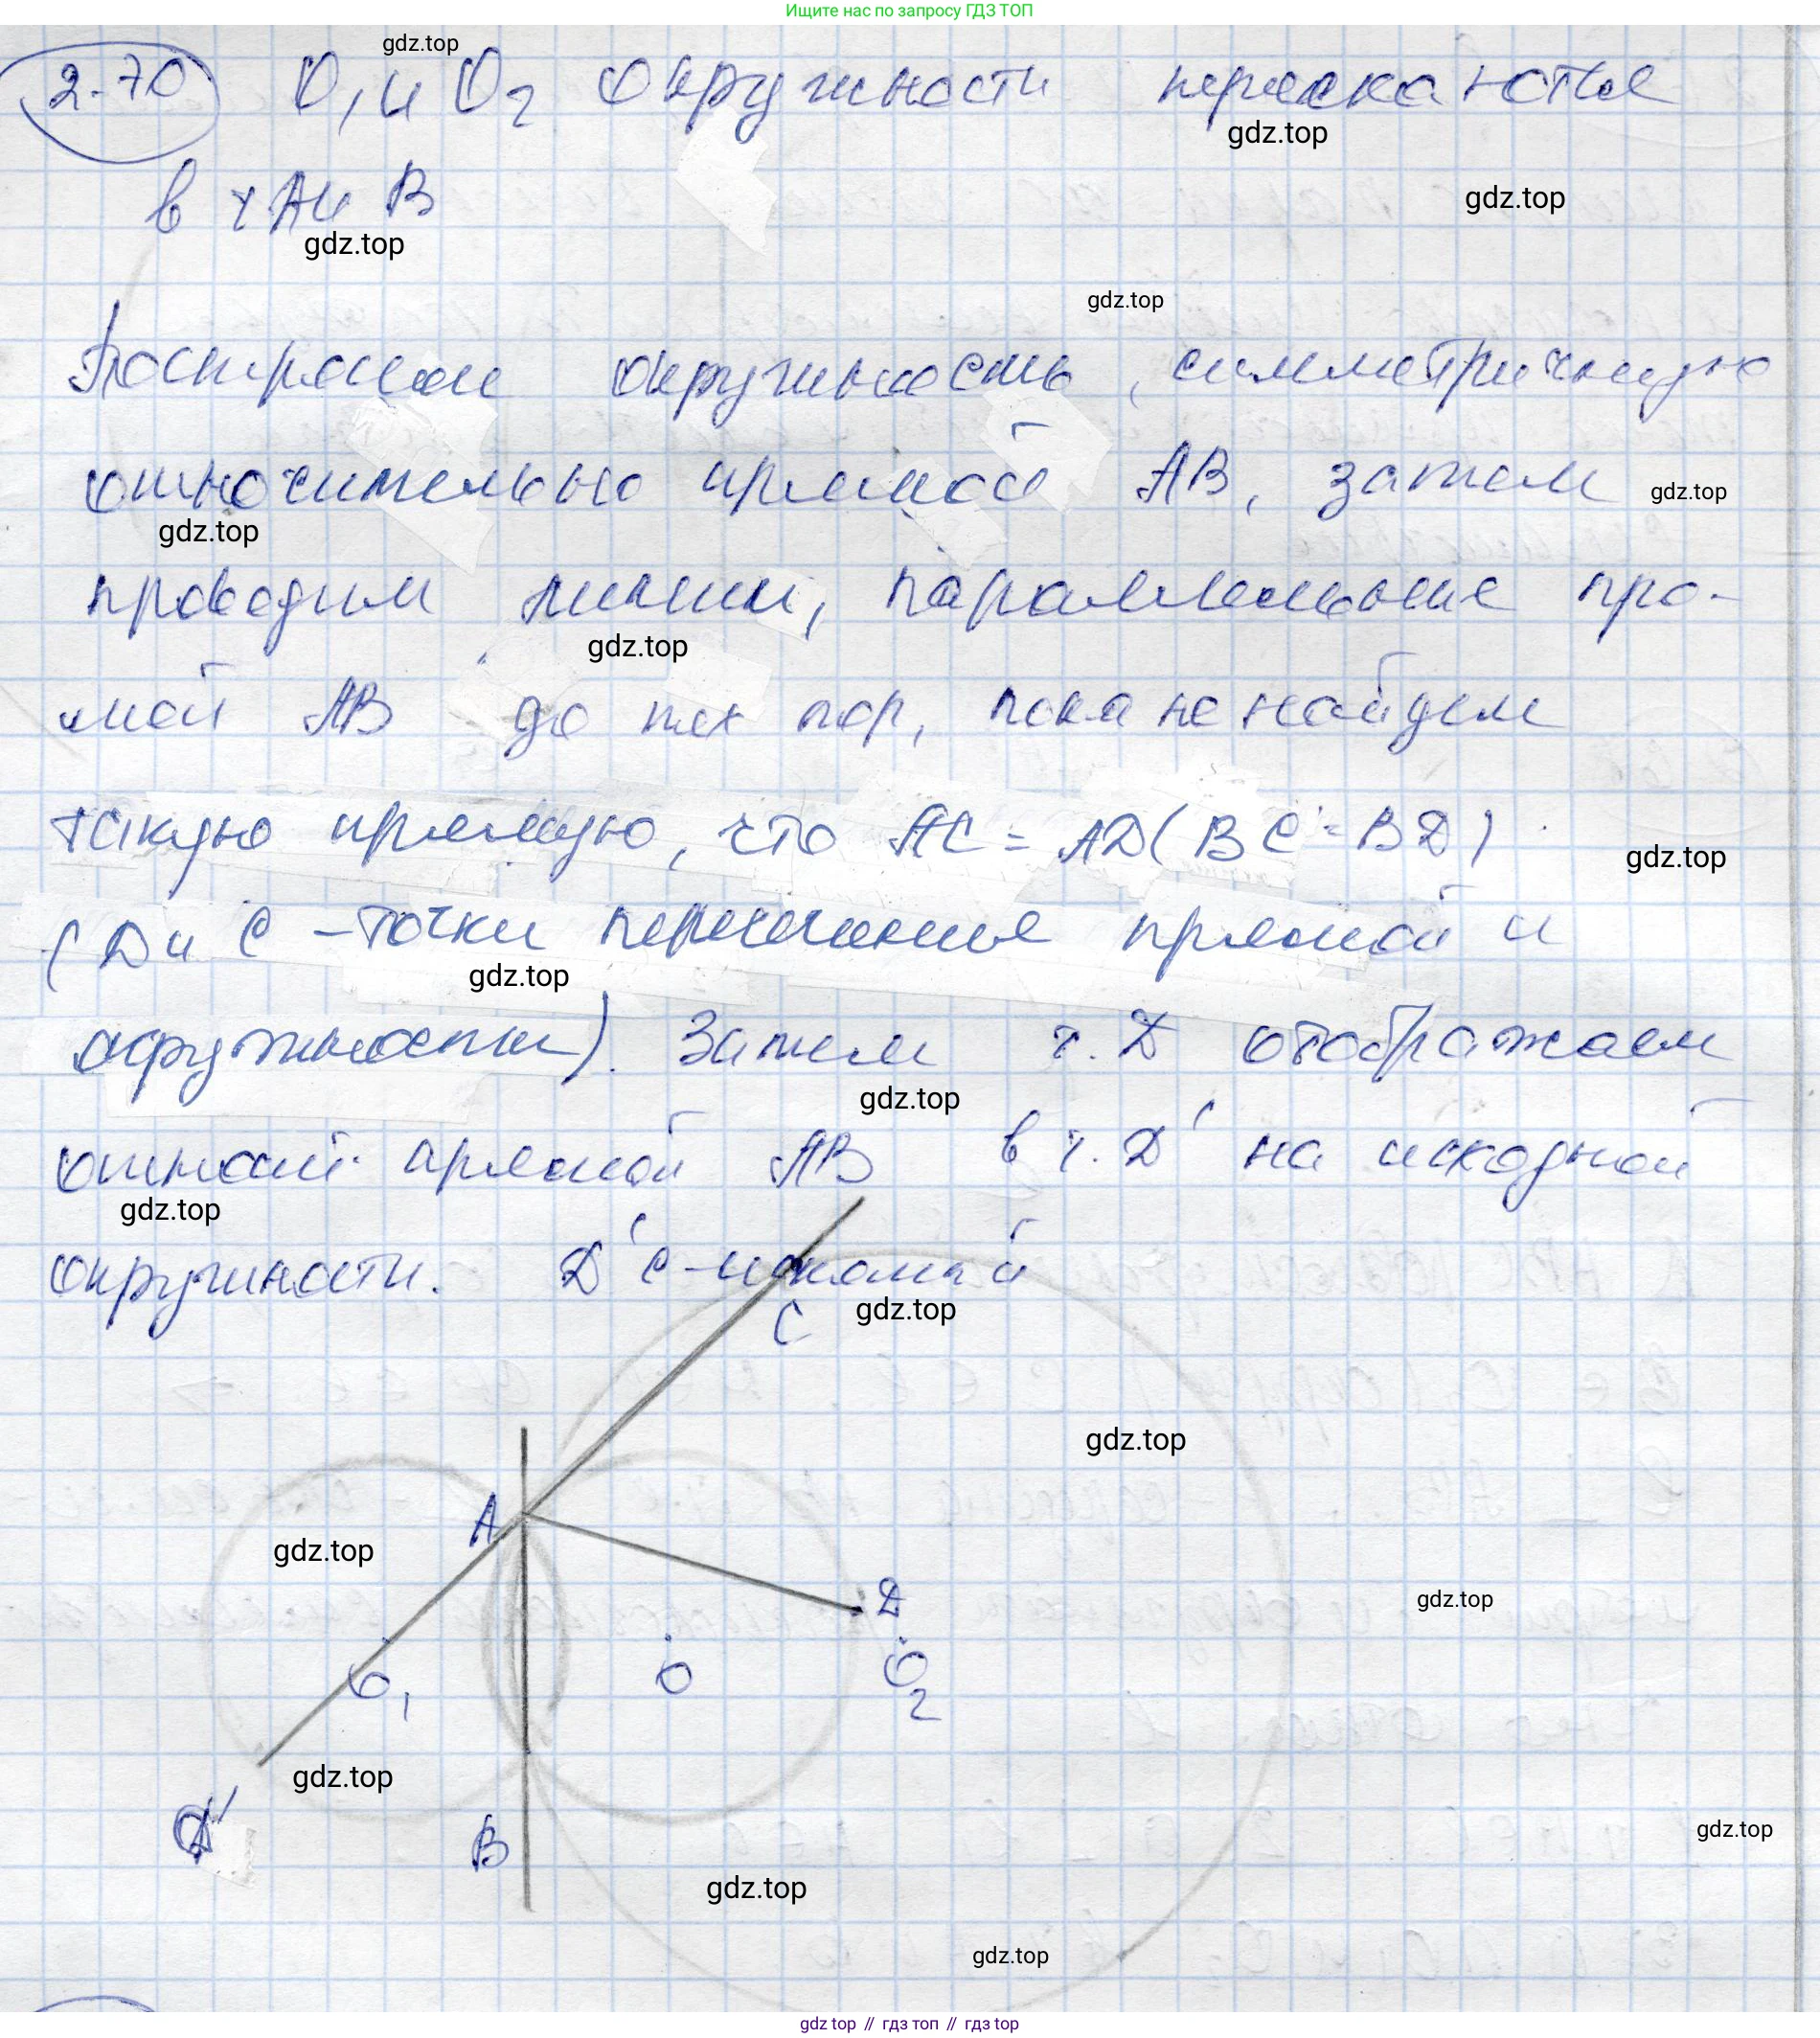 Ищите нас по запросу ГДЗ ТОП
gdz.top
2.70 O₁ и O₂ окружности пересекаются
gdz.top
в т. A и B
gdz.top
gdz.top
gdz.top
Построим окружность, симметричную
относительно прямой AB, затем
gdz.top
gdz.top
проводим линии, параллельные пря-
gdz.top
мой AB до тех пор, пока не найдем
такую прямую, что AC = AD (BC = BD)
gdz.top
(D и C – точки пересечения прямой и
gdz.top
окружности). Затем т. D отображаем
gdz.top
относит. прямой AB в т. D' на исходной
gdz.top
окружности. D'C – искомый
gdz.top
C
gdz.top
A
gdz.top
D
gdz.top
O₁ O O₂
gdz.top
D'
B
gdz.top
gdz.top
gdz.top
gdz top // гдз топ // гдз top